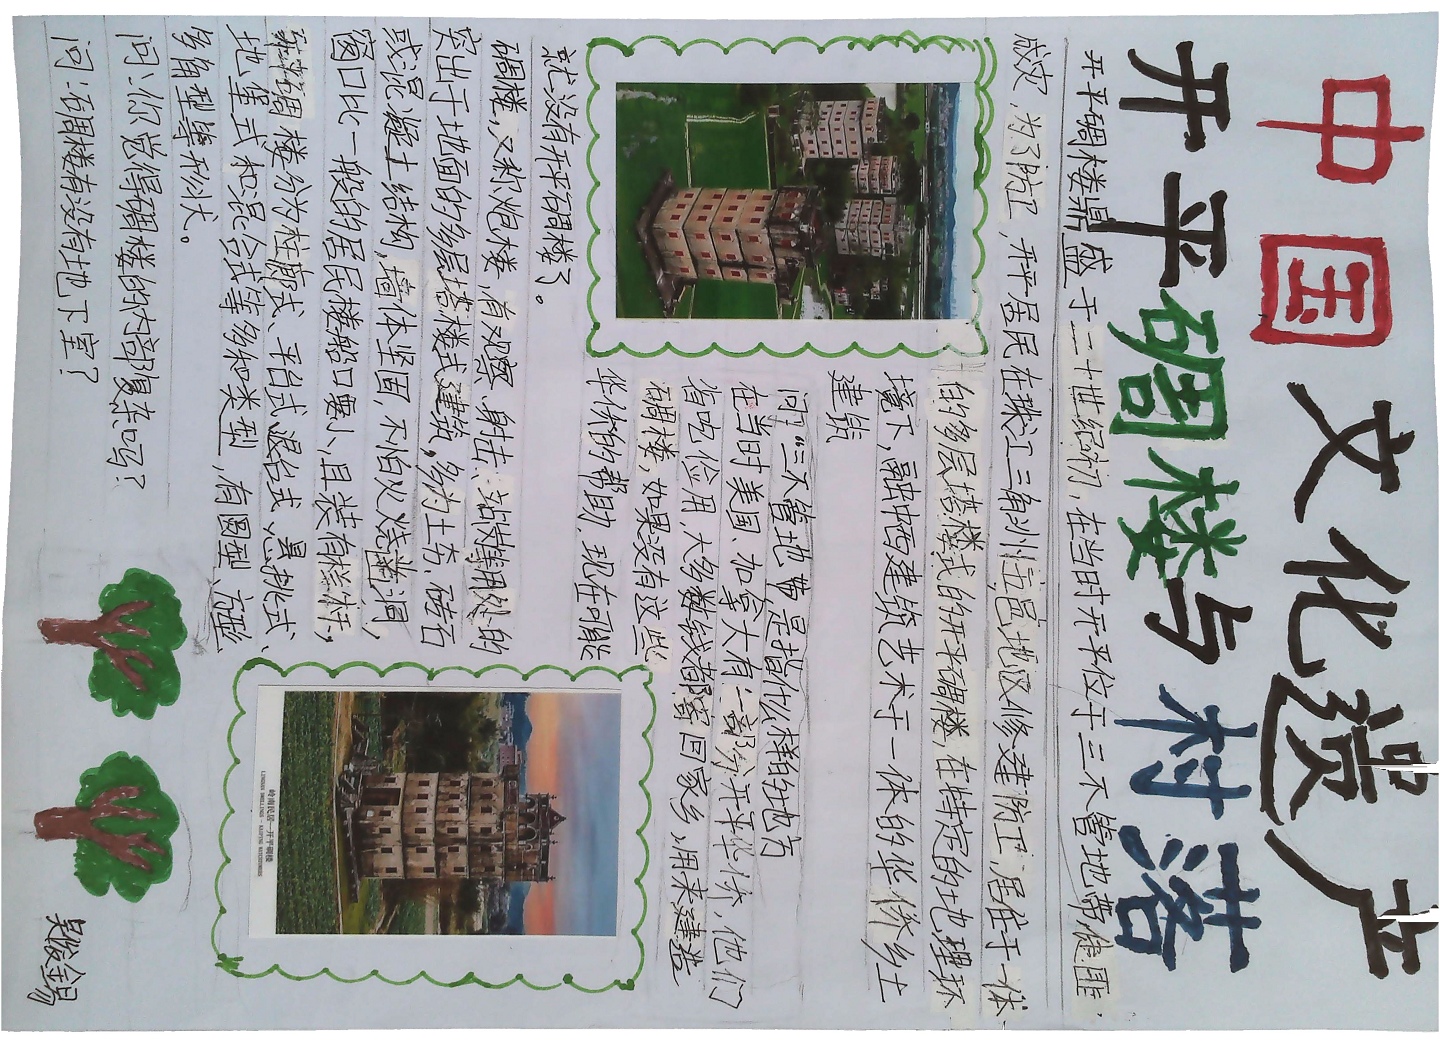 中国文化遗产
开平碉楼与村落
开平碉楼鼎盛于二十世纪初,在当时开平位于三不管地带,匪
成灾,为了防卫,开平居民在珠江三角州伍邑地区修建防工,居住于一体
的多层塔楼式的开平碉楼,在特定的地理环
境下,融中西建筑艺术于一体的华侨乡土
建筑
问:“三不管地带是指什么样的地方
在当时美国、加拿大有一部分开平华侨,他们
省吃俭用,大多数钱都寄回家乡,用来建造
碉楼,如果没有这些
华侨的帮助,现在可能
就没有开平碉楼了。
碉楼,又称炮楼,有观察、射击、站哨用处的
突出于地面的多层塔楼式建筑,多为土夯、砖石
或混凝土结构,墙体坚固,不怕火烧
窗口比一般的居民楼船口要小,且装有栏杆,
碉楼分为柱廊式、平台式、退台式、悬挑式、
地堡式和混合式等多种类型,有圆型、方型
多角型等形状。
问:你觉得碉楼的内部复杂吗?
问:石碉楼有没有地下室?
岭南民居—开平碉楼
LINGNAN DWELLINGS - KAIPING WATCHTOWERS